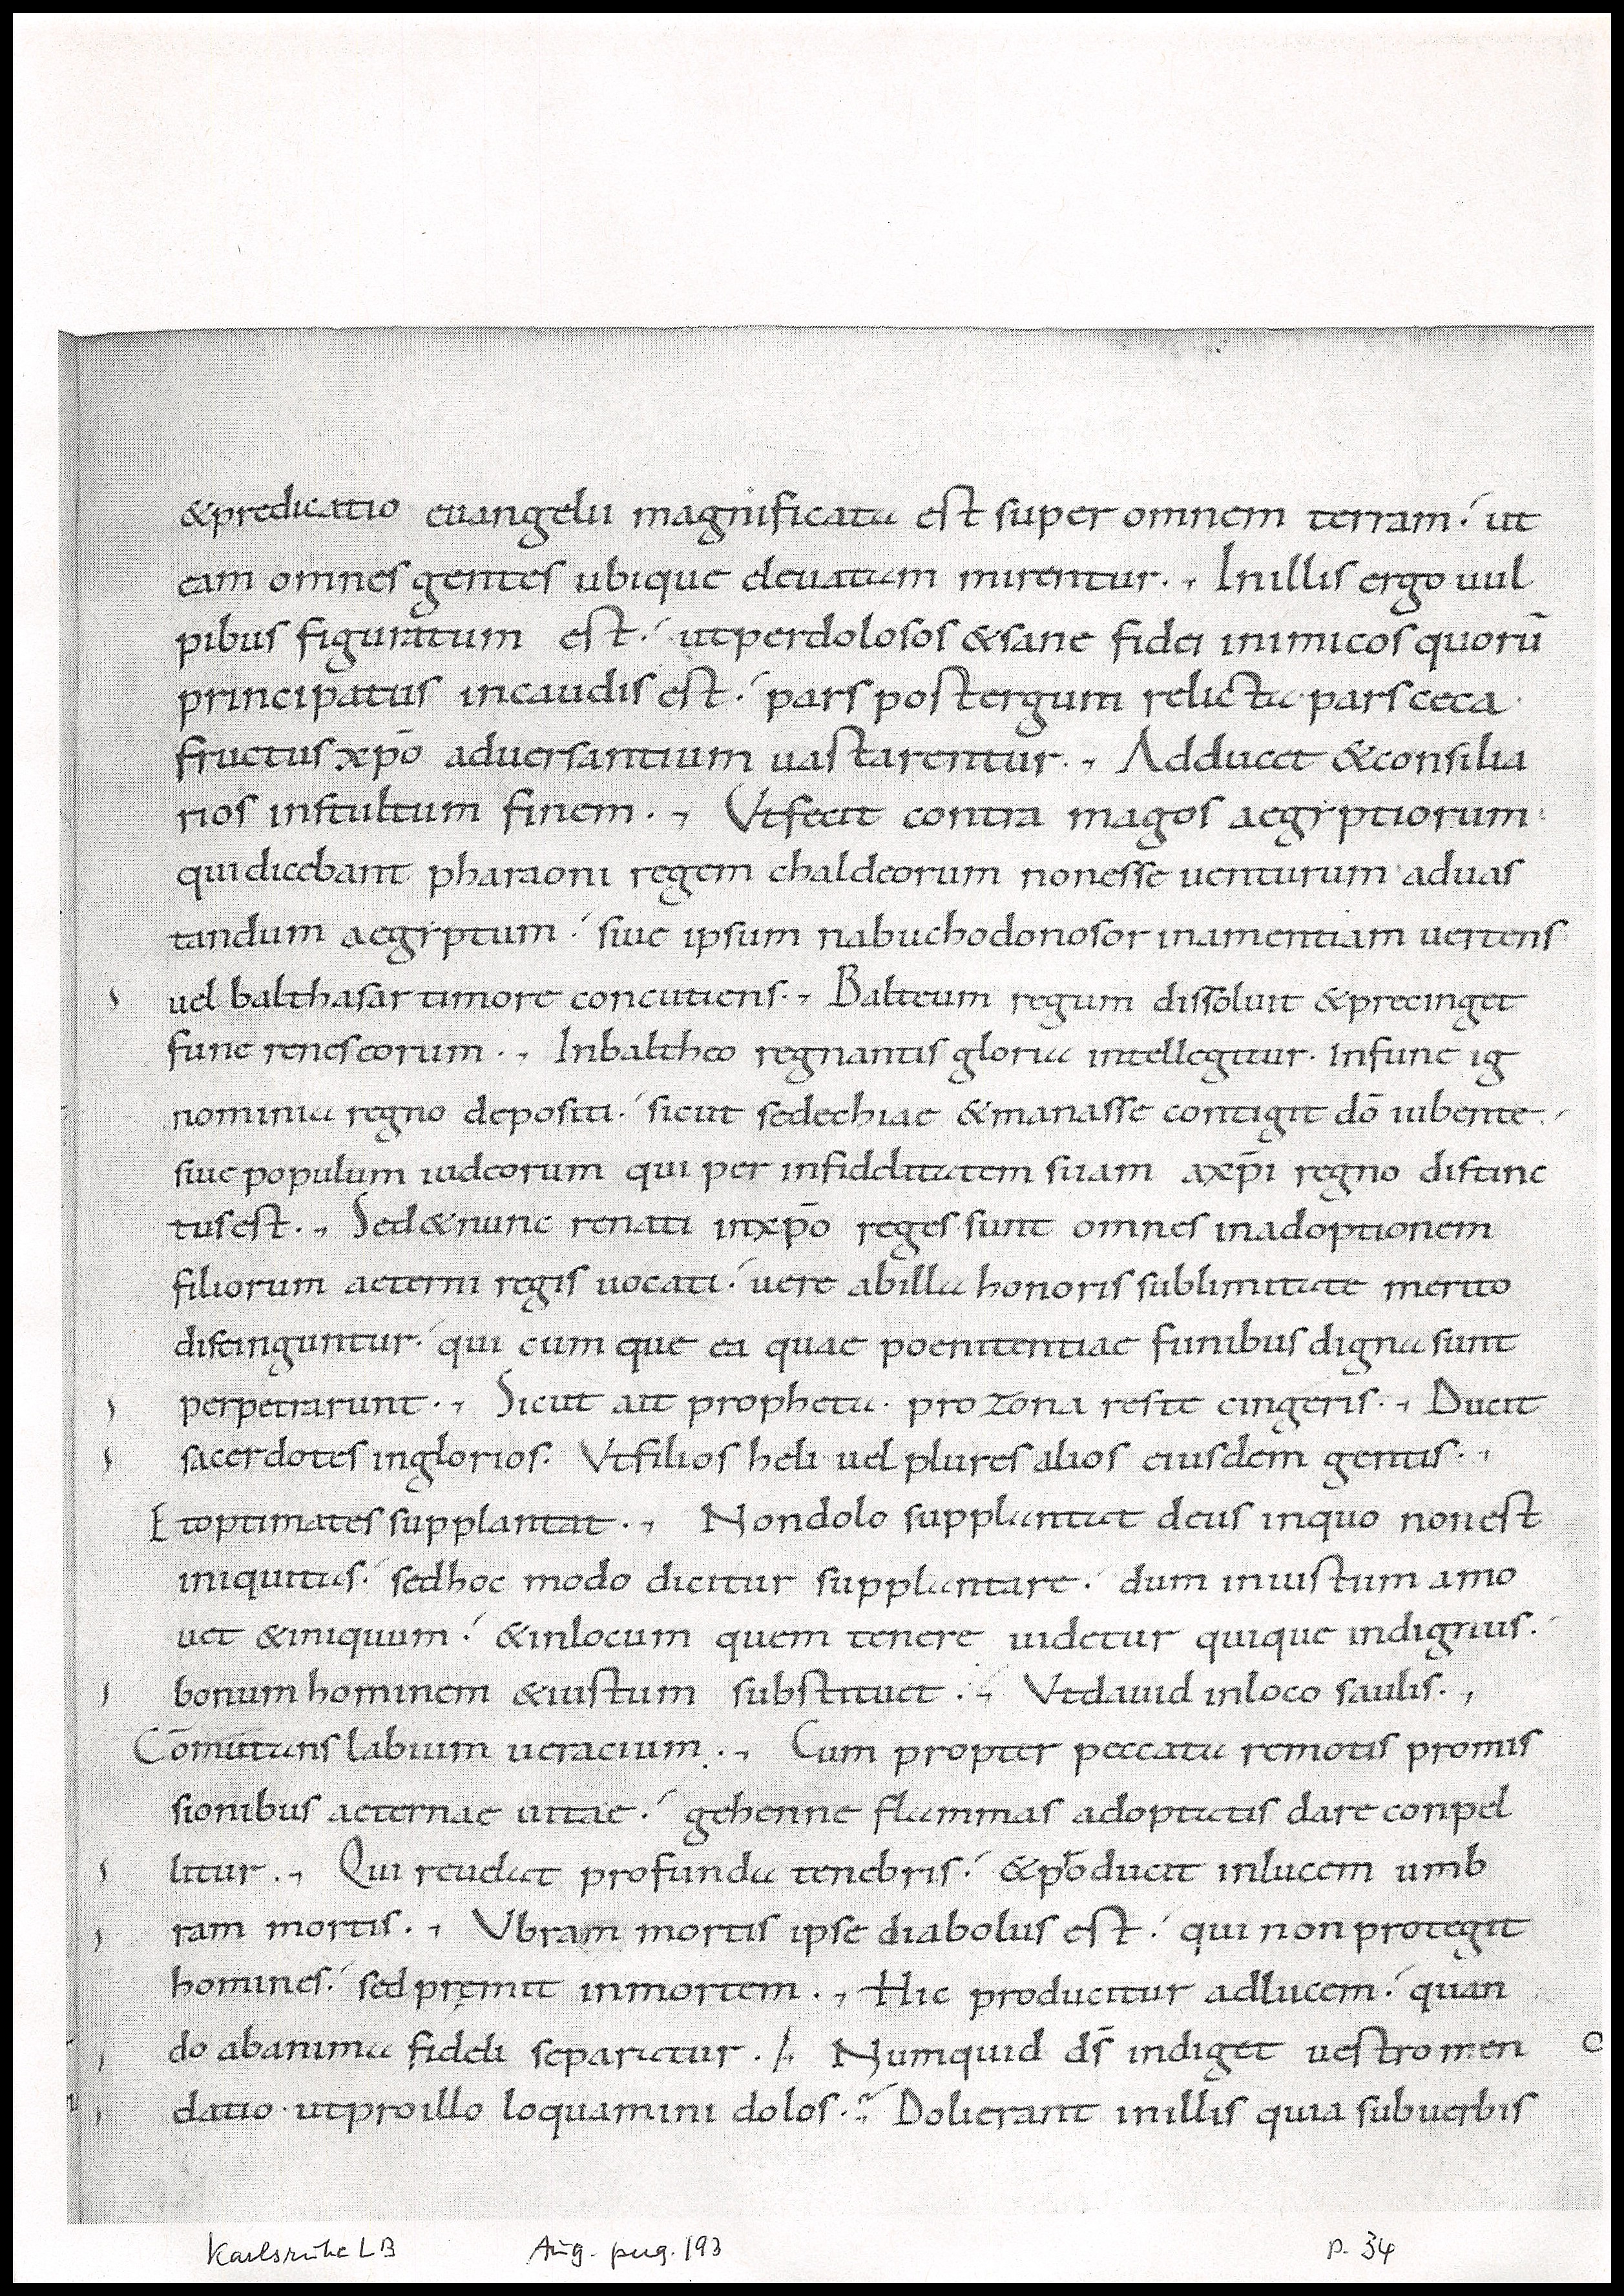 &predicatio euangelii magnificata est super omnem terram. ut
eam omnes gentes ubique eleuatam mirentur. Inillis ergo uul
pibus figuratum est. utperdolosos &sane fidei inimicos quorū
principatus incaudis est. pars postergum relicta pars ceca
fructus xp̄o aduersantium uastarentur. Adducet &consilia
rios instultum finem. Vtfecit contra magos aegyptiorum
quidicebant pharaoni regem chaldeorum nonesse uenturum aduas
tandum aegyptum. siue ipsum nabuchodonosor inamentiam uertens
uel balthasar timore concutiens. Balteum regum dissoluit &precinget
fune renes eorum. Inbaltheo regnantis gloria intellegitur. Infune ig
nominia regno depositi. sicut sedechiae &manasse contigit dō iubente.
siue populum iudeorum qui per infidelitatem suam axp̄i regno distinc
tus est. Sed&nunc renati inxp̄o reges sunt omnes inadoptionem
filiorum aeterni regis uocati. uere abilla honoris sublimitate merito
distinguntur. qui cum que ea quae poenitentiae funibus digna sunt
perpetrarunt. Sicut ait propheta. pro zona reste cingeris. Ducit
sacerdotes inglorios. Vtfilios heli uel plures alios eiusdem gentis.
Etoptimates supplantat. Nondolo supplantat deus inquo nonest
iniquitas. sedhoc modo dicitur supplantare. dum iniustum amo
uet &iniquum. &inlocum quem tenere uidetur quique indignus.
bonum hominem &iustum substituet. Vtdauid inloco saulis.
Cōmutans labium ueracium. Cum propter peccata remotis promis
sionibus aeternae uitae. gehenne flammas adoptatis dare conpel
litur. Qui reuelat profunda tenebris. &producit inlucem umb
ram mortis. Vbram mortis ipse diabolus est. qui non protegit
homines. sed premit inmortem. Hic producitur adlucem. quan
do abanima fideli separatur. Numquid ds̄ indiget uestro men
datio utproillo loquamini dolos. Dolierant inillis quia subuerbis
Karlsruhe LB Aug. perg. 193 p. 34